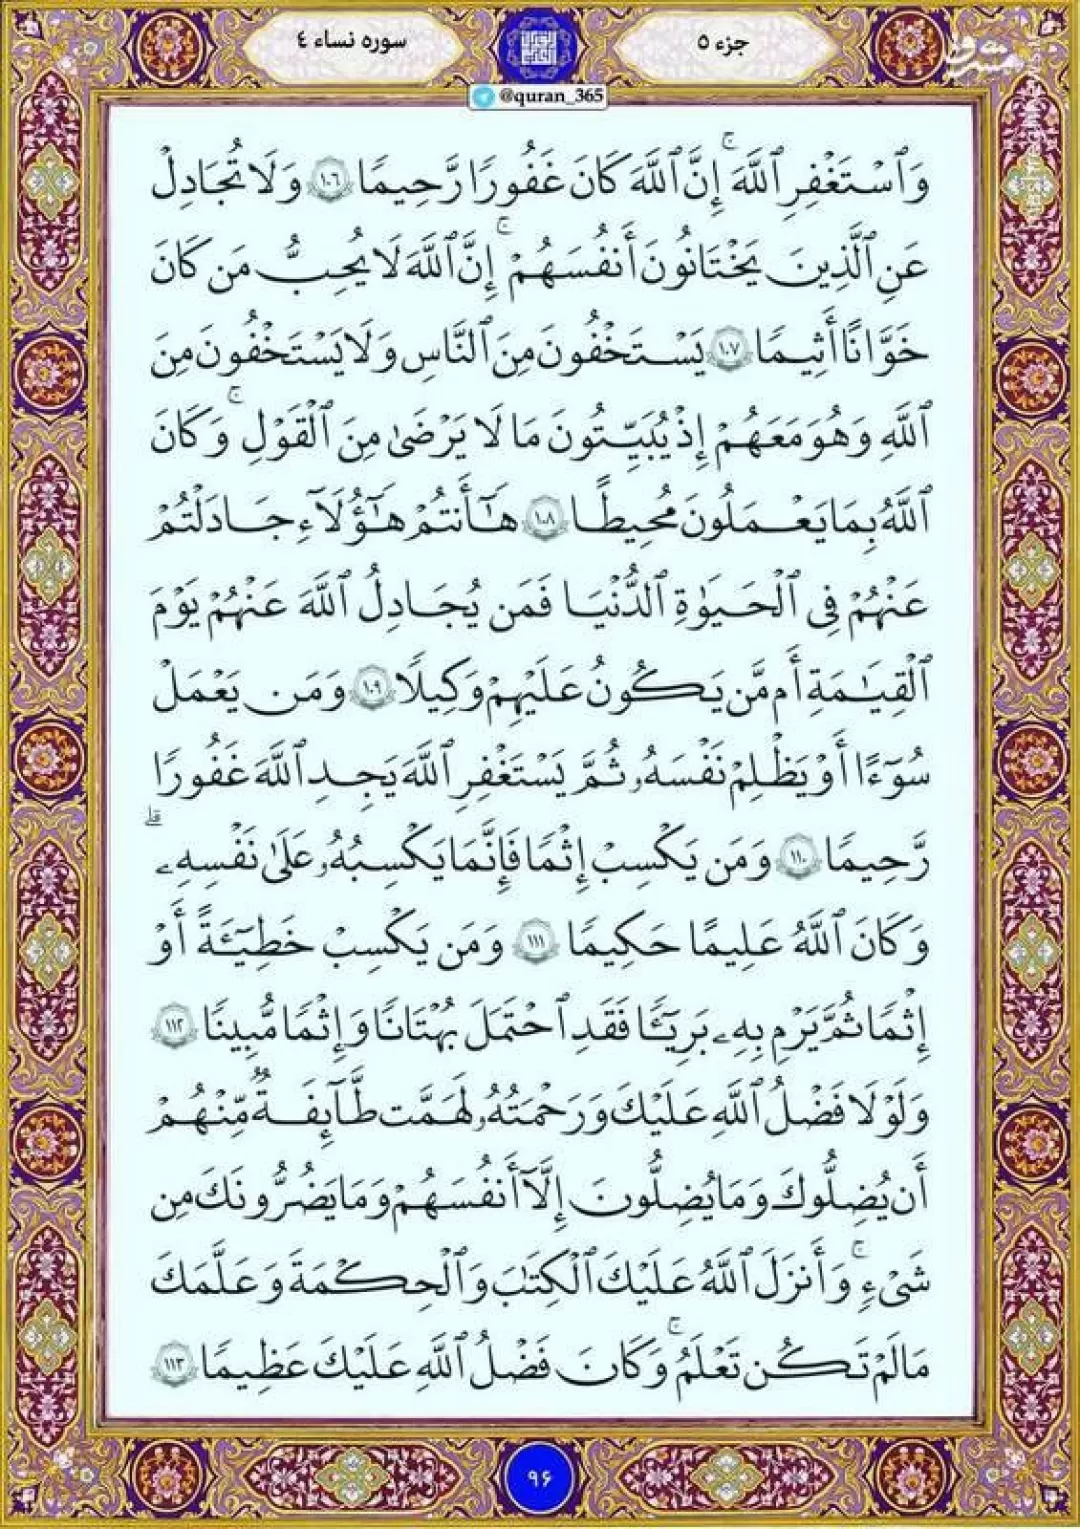 جزء ۵
سوره نساء ۴
@quran_365
مشرق
وَٱسْتَغْفِرِ ٱللَّهَ ۖ إِنَّ ٱللَّهَ كَانَ غَفُورًا رَّحِيمًا ١٠٦ وَلَا تُجَادِلْ
عَنِ ٱلَّذِينَ يَخْتَانُونَ أَنفُسَهُمْ ۚ إِنَّ ٱللَّهَ لَا يُحِبُّ مَن كَانَ
خَوَّانًا أَثِيمًا ١٠٧ يَسْتَخْفُونَ مِنَ ٱلنَّاسِ وَلَا يَسْتَخْفُونَ مِنَ
ٱللَّهِ وَهُوَ مَعَهُمْ إِذْ يُبَيِّتُونَ مَا لَا يَرْضَىٰ مِنَ ٱلْقَوْلِ ۚ وَكَانَ
ٱللَّهُ بِمَا يَعْمَلُونَ مُحِيطًا ١٠٨ هَـٰٓأَنتُمْ هَـٰٓؤُلَآءِ جَـٰدَلْتُمْ
عَنْهُمْ فِى ٱلْحَيَوٰةِ ٱلدُّنْيَا فَمَن يُجَـادِلُ ٱللَّهَ عَنْهُمْ يَوْمَ
ٱلْقِيَـٰمَةِ أَم مَّن يَكُونُ عَلَيْهِمْ وَكِيلًا ١٠٩ وَمَن يَعْمَلْ
سُوٓءًا أَوْ يَظْلِمْ نَفْسَهُۥ ثُمَّ يَسْتَغْفِرِ ٱللَّهَ يَجِدِ ٱللَّهَ غَفُورًا
رَّحِيمًا ١١٠ وَمَن يَكْسِبْ إِثْمًا فَإِنَّمَا يَكْسِبُهُۥ عَلَىٰ نَفْسِهِۦ ۚ
وَكَانَ ٱللَّهُ عَلِيمًا حَكِيمًا ١١١ وَمَن يَكْسِبْ خَطِيٓـَٔةً أَوْ
إِثْمًا ثُمَّ يَرْمِ بِهِۦ بَرِيٓـًٔا فَقَدِ ٱحْتَمَلَ بُهْتَانًا وَإِثْمًا مُّبِينًا ١١٢
وَلَوْلَا فَضْلُ ٱللَّهِ عَلَيْكَ وَرَحْمَتُهُۥ لَهَمَّت طَّآئِفَةٌ مِّنْهُمْ
أَن يُضِلُّوكَ وَمَا يُضِلُّونَ إِلَّآ أَنفُسَهُمْ وَمَا يَضُرُّونَكَ مِن
شَىْءٍ ۚ وَأَنزَلَ ٱللَّهُ عَلَيْكَ ٱلْكِتَـٰبَ وَٱلْحِكْمَةَ وَعَلَّمَكَ
مَا لَمْ تَكُن تَعْلَمُ ۚ وَكَانَ فَضْلُ ٱللَّهِ عَلَيْكَ عَظِيمًا ١١٣
۹۶